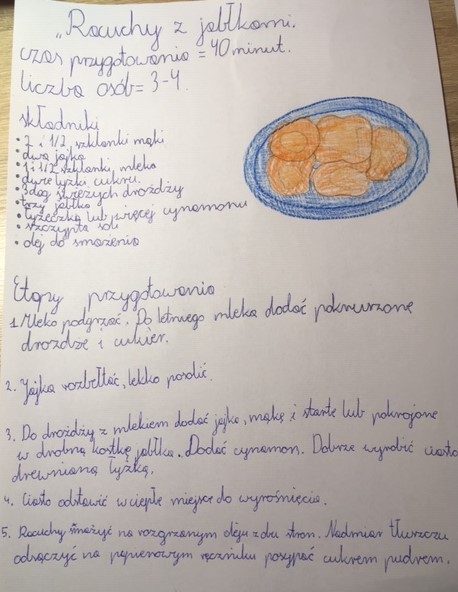 "Racuchy z jabłkami.
czas przygotowania = 40 minut.
liczba osób = 3-4.
składniki
• 2 i 1/2 szklanki mąki
• dwa jajka
• 1 i 1/2 szklanki mleka
• dwie łyżki cukru
• 3dag świeżych drożdży
• trzy jabłka
• łyżeczka lub więcej cynamonu
• szczypta soli
• olej do smażenia
Etapy przygotowania
1. Mleko podgrzać. Do letniego mleka dodać pokruszone
drożdże i cukier.
2. Jajka rozbełtać, lekko posolić.
3. Do drożdży z mlekiem dodać jajka, mąkę i starte lub pokrojone
w drobną kostkę jabłka. Dodać cynamon. Dobrze wyrobić ciasto
drewnianą łyżką.
4. Ciasto odstawić w ciepłe miejsce do wyrośnięcia.
5. Racuchy smażyć na rozgrzanym oleju z dwu stron. Nadmiar tłuszczu
odsączyć na papierowym ręczniku posypać cukrem pudrem.